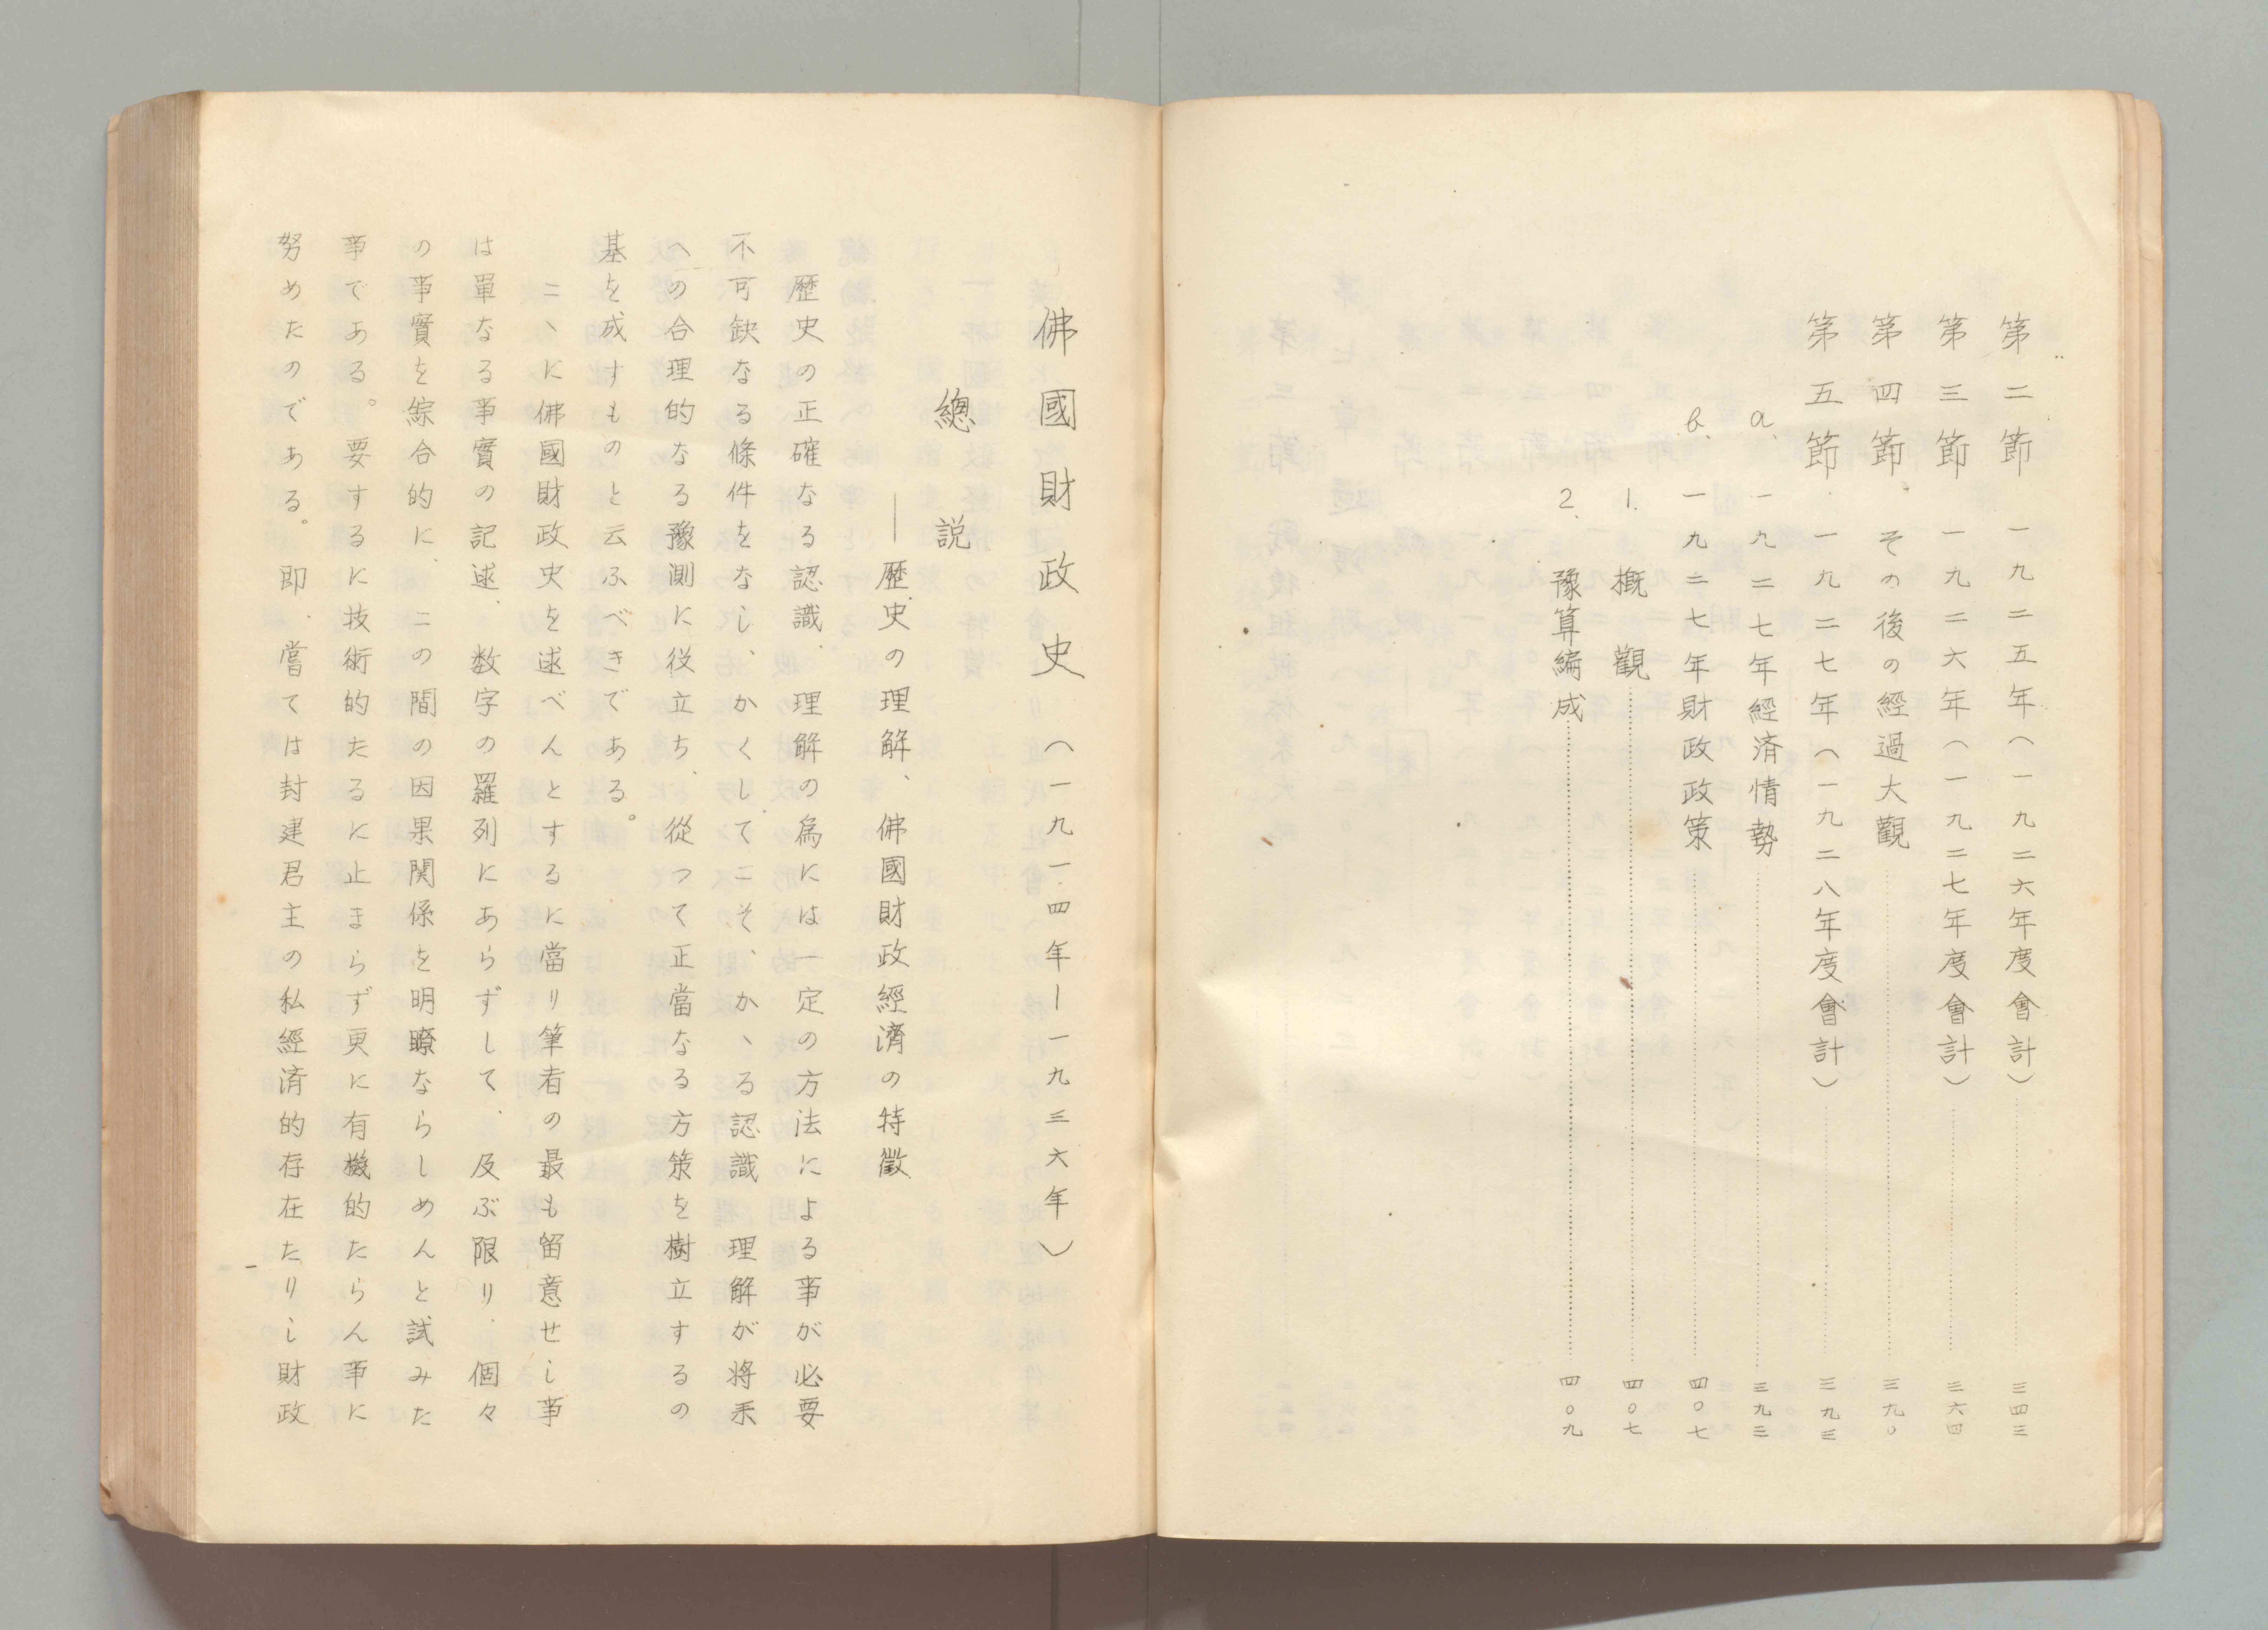 第二節 一九二五年(一九二六年度會計)……三四三
第三節 一九二六年(一九二七年度會計)……三六四
第四節 その後の經過大觀……三九〇
第五節 一九二七年(一九二八年度會計)……三九三
a、一九二七年經済情勢……三九三
b、一九二七年財政政策……四〇七
1、概觀……四〇七
2、豫算編成……四〇九
佛國財政史(一九一四年―一九三六年)
總説
――歴史の理解、佛國財政經濟の特徴
歴史の正確なる認識、理解の為には一定の方法による事が必要
不可缺なる條件をなし、かくしてこそ、かゝる認識理解が将来
への合理的なる豫測に役立ち、從つて正當なる方策を樹立するの
基を成すものと云ふべきである。
こゝに佛國財政史を述べんとするに當り筆者の最も留意せし事
は單なる事實の記述、数字の羅列にあらずして、及ぶ限り、個々
の事實を綜合的に、この間の因果関係を明瞭ならしめんと試みた
事である。要するに技術的たるに止まらず更に有機的たらん事に
努めたのである。即、嘗ては封建君主の私經済的存在たりし財政